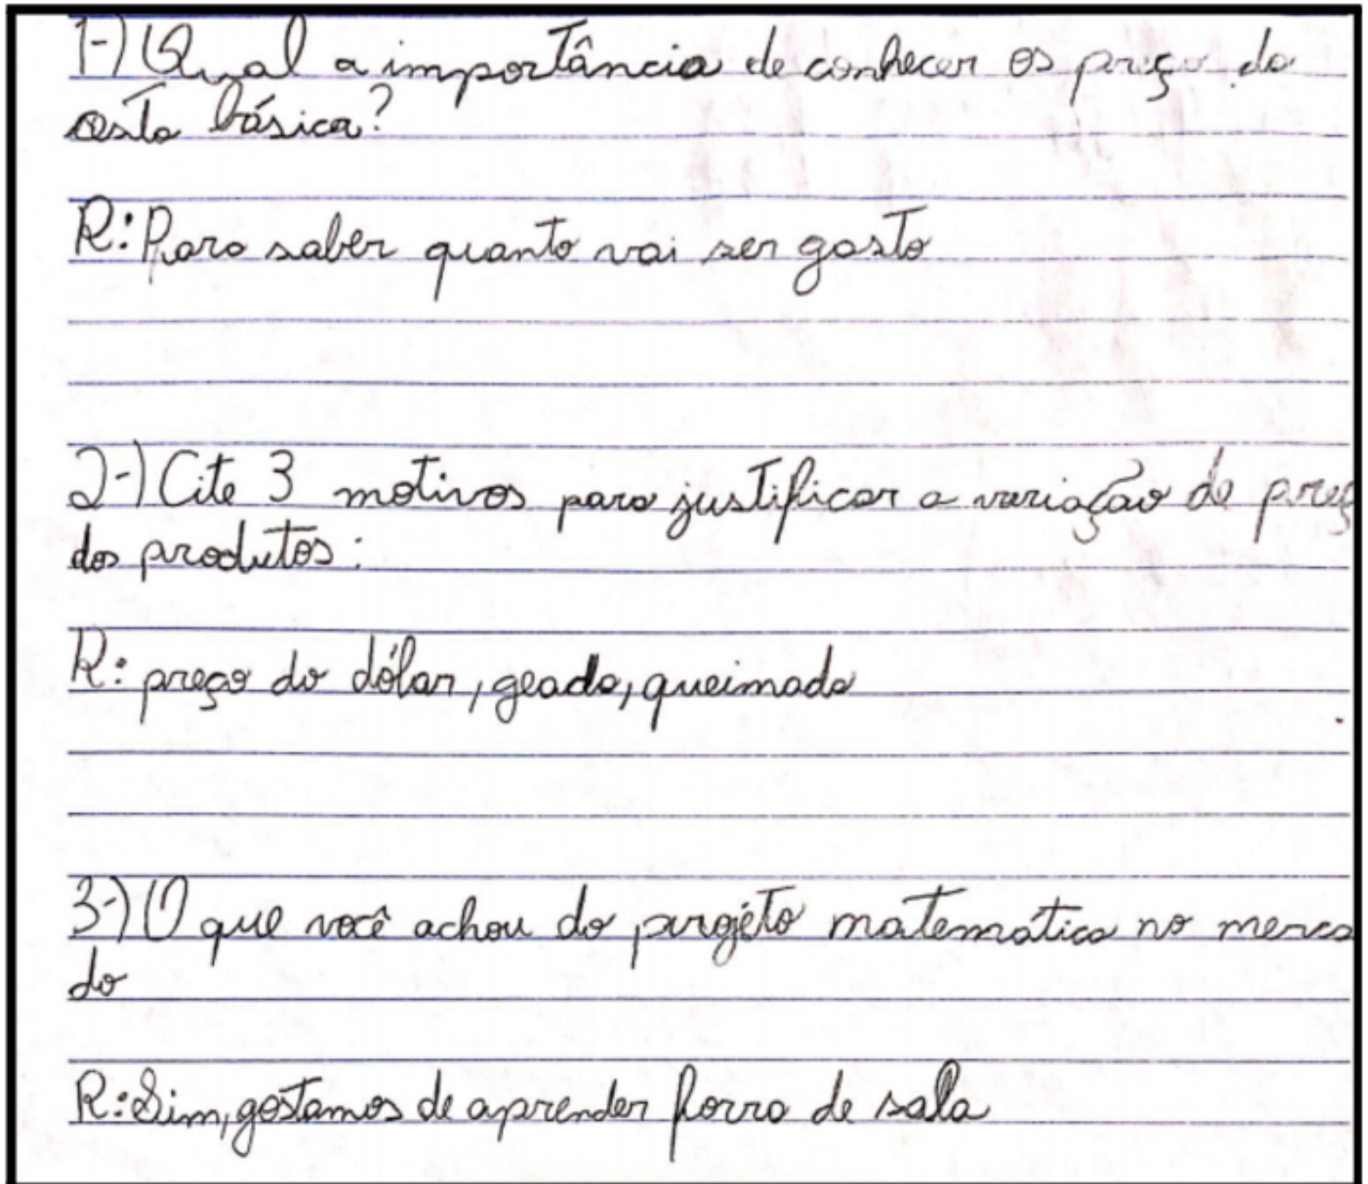 1-) Qual a importância de conhecer os preço da
cesta básica?
R: Para saber quanto vai ser gasto
2-) Cite 3 motivos para justificar a variação de preç
dos produtos:
R: preço do dólar, geada, queimada
3-) O que você achou do projéto matematica no merca
do
R: Sim, gostamos de aprender forra de sala